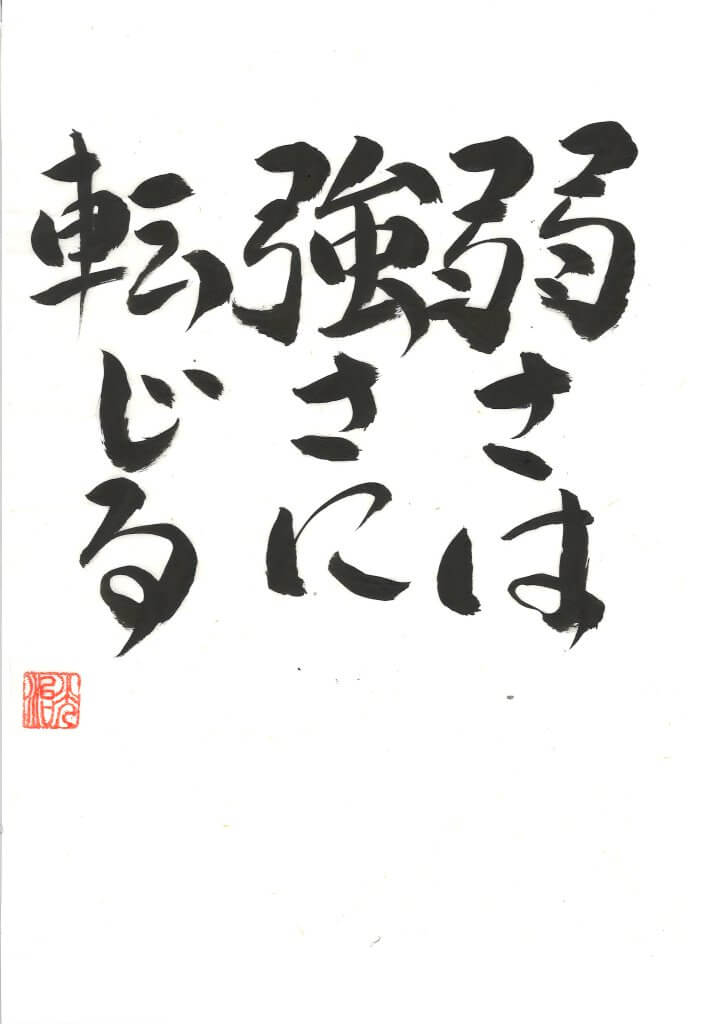 弱さは
強さに
転じる